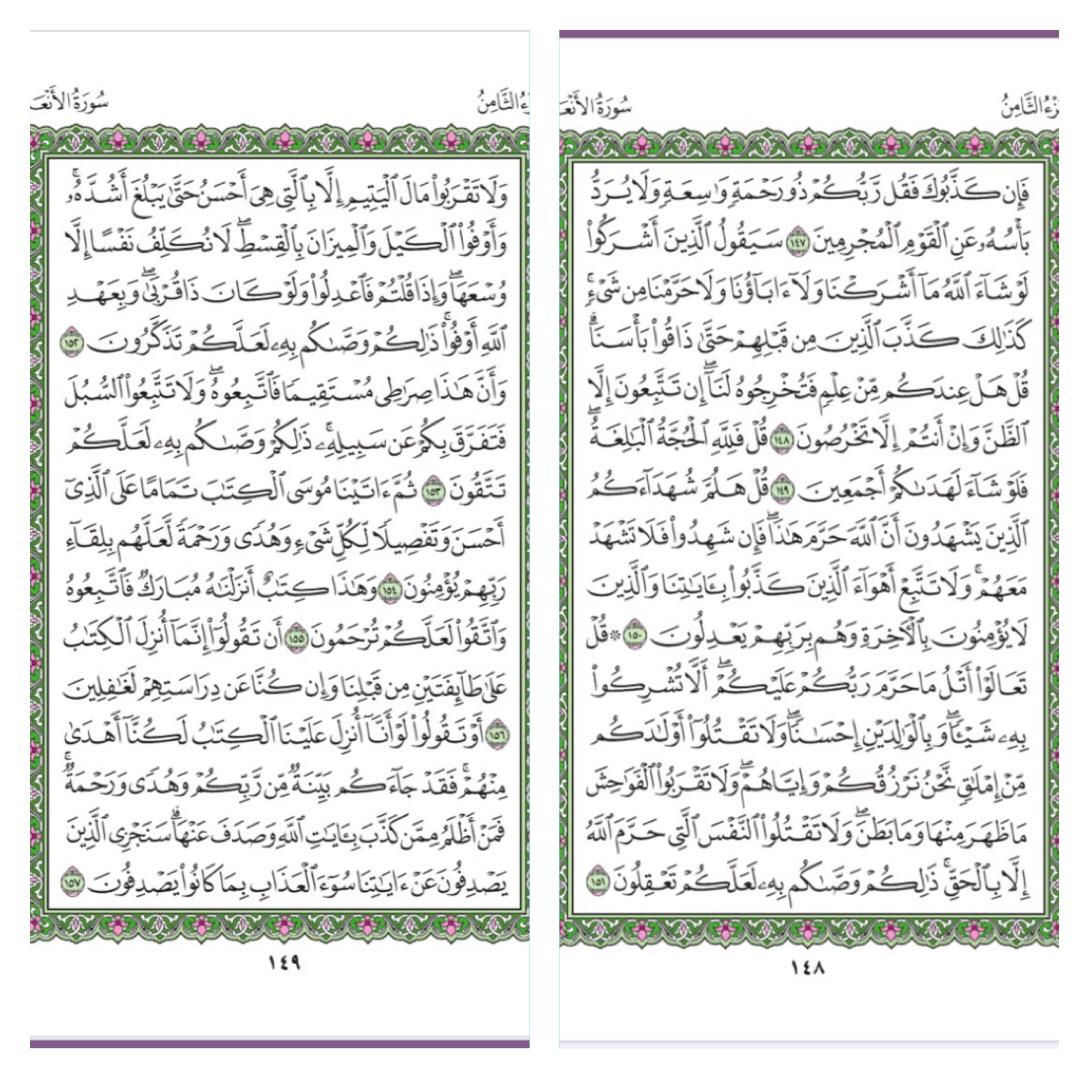 سُورَةُ الأَنْعَ
زْءُ الثَّامِنُ
فَإِن كَذَّبُوكَ فَقُل رَّبُّكُمْ ذُو رَحْمَةٍ وَٰسِعَةٍ وَلَا يُرَدُّ
بَأْسُهُۥ عَنِ ٱلْقَوْمِ ٱلْمُجْرِمِينَ ١٤٧ سَيَقُولُ ٱلَّذِينَ أَشْرَكُوا۟
لَوْ شَآءَ ٱللَّهُ مَآ أَشْرَكْنَا وَلَآ ءَابَآؤُنَا وَلَا حَرَّمْنَا مِن شَىْءٍۚ
كَذَٰلِكَ كَذَّبَ ٱلَّذِينَ مِن قَبْلِهِمْ حَتَّىٰ ذَاقُوا۟ بَأْسَنَاۗ
قُلْ هَلْ عِندَكُم مِّنْ عِلْمٍ فَتُخْرِجُوهُ لَنَآۖ إِن تَتَّبِعُونَ إِلَّا
ٱلظَّنَّ وَإِنْ أَنتُمْ إِلَّا تَخْرُصُونَ ١٤٨ قُلْ فَلِلَّهِ ٱلْحُجَّةُ ٱلْبَٰلِغَةُۖ
فَلَوْ شَآءَ لَهَدَىٰكُمْ أَجْمَعِينَ ١٤٩ قُلْ هَلُمَّ شُهَدَآءَكُمُ
ٱلَّذِينَ يَشْهَدُونَ أَنَّ ٱللَّهَ حَرَّمَ هَٰذَاۖ فَإِن شَهِدُوا۟ فَلَا تَشْهَدْ
مَعَهُمْۚ وَلَا تَتَّبِعْ أَهْوَآءَ ٱلَّذِينَ كَذَّبُوا۟ بِـَٔايَٰتِنَا وَٱلَّذِينَ
لَا يُؤْمِنُونَ بِٱلْـَٔاخِرَةِ وَهُم بِرَبِّهِمْ يَعْدِلُونَ ١٥٠ ۞ قُلْ
تَعَالَوْا۟ أَتْلُ مَا حَرَّمَ رَبُّكُمْ عَلَيْكُمْۖ أَلَّا تُشْرِكُوا۟
بِهِۦ شَيْـًٔاۖ وَبِٱلْوَٰلِدَيْنِ إِحْسَٰنًاۖ وَلَا تَقْتُلُوٓا۟ أَوْلَٰدَكُم
مِّنْ إِمْلَٰقٍۖ نَّحْنُ نَرْزُقُكُمْ وَإِيَّاهُمْۖ وَلَا تَقْرَبُوا۟ ٱلْفَوَٰحِشَ
مَا ظَهَرَ مِنْهَا وَمَا بَطَنَۖ وَلَا تَقْتُلُوا۟ ٱلنَّفْسَ ٱلَّتِى حَرَّمَ ٱللَّهُ
إِلَّا بِٱلْحَقِّۚ ذَٰلِكُمْ وَصَّىٰكُم بِهِۦ لَعَلَّكُمْ تَعْقِلُونَ ١٥١
١٤٨
سُورَةُ الأَنْعَ
ءُ الثَّامِنُ
وَلَا تَقْرَبُوا۟ مَالَ ٱلْيَتِيمِ إِلَّا بِٱلَّتِى هِىَ أَحْسَنُ حَتَّىٰ يَبْلُغَ أَشُدَّهُۥۚ
وَأَوْفُوا۟ ٱلْكَيْلَ وَٱلْمِيزَانَ بِٱلْقِسْطِۖ لَا نُكَلِّفُ نَفْسًا إِلَّا
وُسْعَهَاۖ وَإِذَا قُلْتُمْ فَٱعْدِلُوا۟ وَلَوْ كَانَ ذَا قُرْبَىٰۖ وَبِعَهْدِ
ٱللَّهِ أَوْفُوا۟ۚ ذَٰلِكُمْ وَصَّىٰكُم بِهِۦ لَعَلَّكُمْ تَذَكَّرُونَ ١٥٢
وَأَنَّ هَٰذَا صِرَٰطِى مُسْتَقِيمًا فَٱتَّبِعُوهُۖ وَلَا تَتَّبِعُوا۟ ٱلسُّبُلَ
فَتَفَرَّقَ بِكُمْ عَن سَبِيلِهِۦۚ ذَٰلِكُمْ وَصَّىٰكُم بِهِۦ لَعَلَّكُمْ
تَتَّقُونَ ١٥٣ ثُمَّ ءَاتَيْنَا مُوسَى ٱلْكِتَٰبَ تَمَامًا عَلَى ٱلَّذِىٓ
أَحْسَنَ وَتَفْصِيلًا لِّكُلِّ شَىْءٍ وَهُدًى وَرَحْمَةً لَّعَلَّهُم بِلِقَآءِ
رَبِّهِمْ يُؤْمِنُونَ ١٥٤ وَهَٰذَا كِتَٰبٌ أَنزَلْنَٰهُ مُبَارَكٌ فَٱتَّبِعُوهُ
وَٱتَّقُوا۟ لَعَلَّكُمْ تُرْحَمُونَ ١٥٥ أَن تَقُولُوٓا۟ إِنَّمَآ أُنزِلَ ٱلْكِتَٰبُ
عَلَىٰ طَآئِفَتَيْنِ مِن قَبْلِنَا وَإِن كُنَّا عَن دِرَاسَتِهِمْ لَغَٰفِلِينَ
١٥٦ أَوْ تَقُولُوا۟ لَوْ أَنَّآ أُنزِلَ عَلَيْنَا ٱلْكِتَٰبُ لَكُنَّآ أَهْدَىٰ
مِنْهُمْۚ فَقَدْ جَآءَكُم بَيِّنَةٌ مِّن رَّبِّكُمْ وَهُدًى وَرَحْمَةٌۚ
فَمَنْ أَظْلَمُ مِمَّن كَذَّبَ بِـَٔايَٰتِ ٱللَّهِ وَصَدَفَ عَنْهَاۗ سَنَجْزِى ٱلَّذِينَ
يَصْدِفُونَ عَنْ ءَايَٰتِنَا سُوٓءَ ٱلْعَذَابِ بِمَا كَانُوا۟ يَصْدِفُونَ ١٥٧
١٤٩